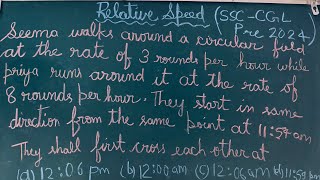 Relative Speed (SSC-CGL
Pre 2024)
Seema walks around a circular field
at the rate of 3 rounds per hour while
priya runs around it at the rate of
8 rounds per hour. They start in same
direction from the same point at 11:54 am
They shall first cross each other at
(a) 12:06 pm (b) 12:00 am (c) 12:06 am (d) 11:59 pm